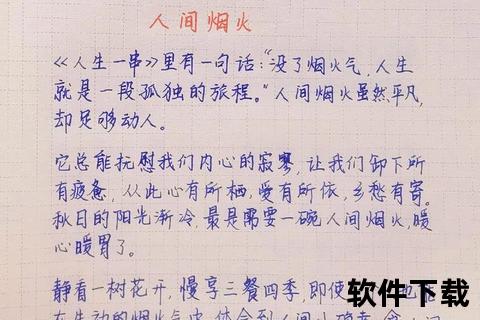 人间烟火
《人生一串》里有一句话:“没了烟火气,人生
就是一段孤独的旅程。”人间烟火虽然平凡,
却足够动人。
它总能抚慰我们内心的寂寥,让我们卸下所
有疲惫,从此心有所栖,爱有所依,乡愁有寄。
秋日的阳光渐冷,最是需要一碗人间烟火,暖
心暖胃了。
静看一树花开,慢享三餐四季,即使
也
软件下载
在生动的烟火气中,体会到人间小